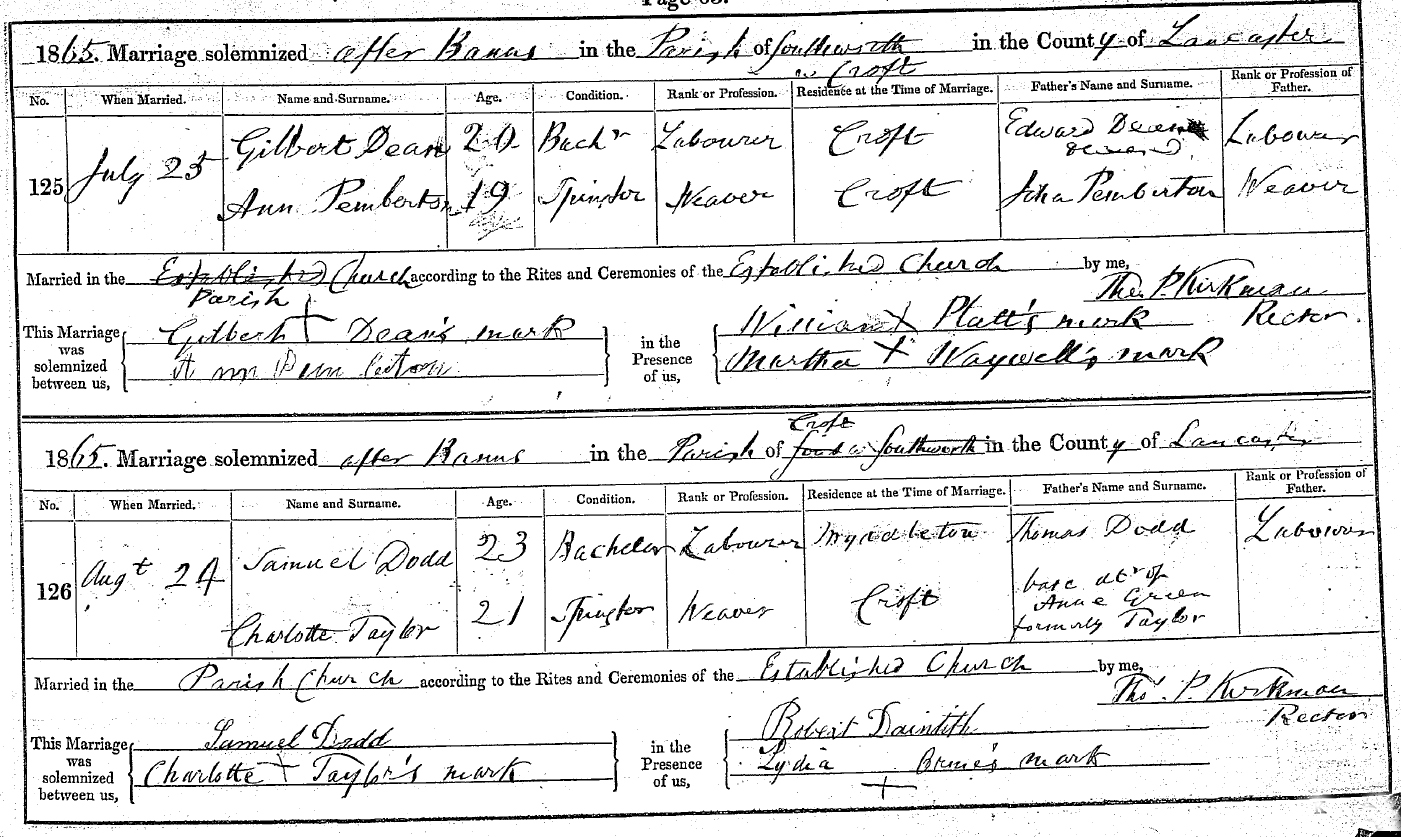 Page 63.
1865. Marriage solemnized after Banns in the Parish of Southworth in the County of Lancaster
w Croft
No. When Married. Name and Surname. Age. Condition. Rank or Profession. Residence at the Time of Marriage. Father's Name and Surname. Rank or Profession of Father.
125 July 25 Gilbert Dean 20 Bachr Labourer Croft Edward Dean deceased Labourer
Ann Pemberton 19 Spinster Weaver Croft John Pemberton Weaver
Married in the Established Church according to the Rites and Ceremonies of the Established Church by me,
Parish Thos. P. Kirkman
Rector.
This Marriage was solemnized between us, Gilbert + Dean's mark in the Presence of us, William + Platt's mark
Ann Pemberton Martha + Waywell's mark
Croft
1865. Marriage solemnized after Banns in the Parish of Southworth in the County of Lancaster
No. When Married. Name and Surname. Age. Condition. Rank or Profession. Residence at the Time of Marriage. Father's Name and Surname. Rank or Profession of Father.
126 Augt 24 Samuel Dodd 23 Bachelor Labourer Thomas Dodd Labourer
Charlotte Taylor 21 Spinster Weaver Croft base dtr of
Anne Green
formerly Taylor
Married in the Parish Church according to the Rites and Ceremonies of the Established Church by me,
Thos. P. Kirkman
Rector
This Marriage was solemnized between us, Samuel Dodd in the Presence of us, Robert Daintith
Charlotte + Taylor's mark Lydia + mark